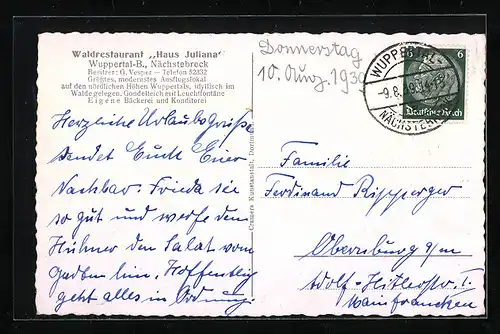 Waldrestaurant „Haus Juliana"
Wuppertal-B., Nächstebreck
Besitzer: G. Vesper — Telefon 52832
Größtes, modernstes Ausflugslokal
auf den nördlichen Höhen Wuppertals, idyllisch im
Walde gelegen. Gondelteich mit Leuchtfontäne
Eigene Bäckerei und Konditorei
Herzliche Urlaubsgrüße
sendet Euch Euer
Nachbar. Frieda sei
so gut und werfe den
Hühner den Salat vom
hin, Hoffentlich
geht alles in Ordnung.
Donnerstag
10. 1939
WUPPERTAL
-9.8.39
NÄCHSTEBRECK
6
Deutsches Reich
Familie
Ferdinand Ripperger
Obernburg a/m
Adolf-Hitlerstr. 1
Mainfranken